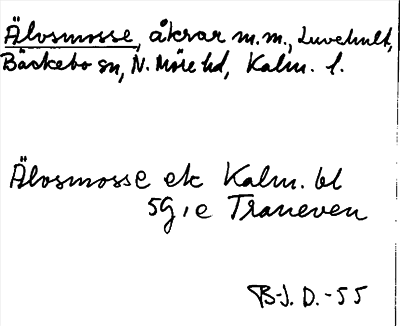 Älvsmosse, åkrar m.m., Luvehult,
Bäckebo sn, N. Möre hd, Kalm. l.
Älvsmosse ek Kalm. bl
5G, e Traneven
B-J. D. -55